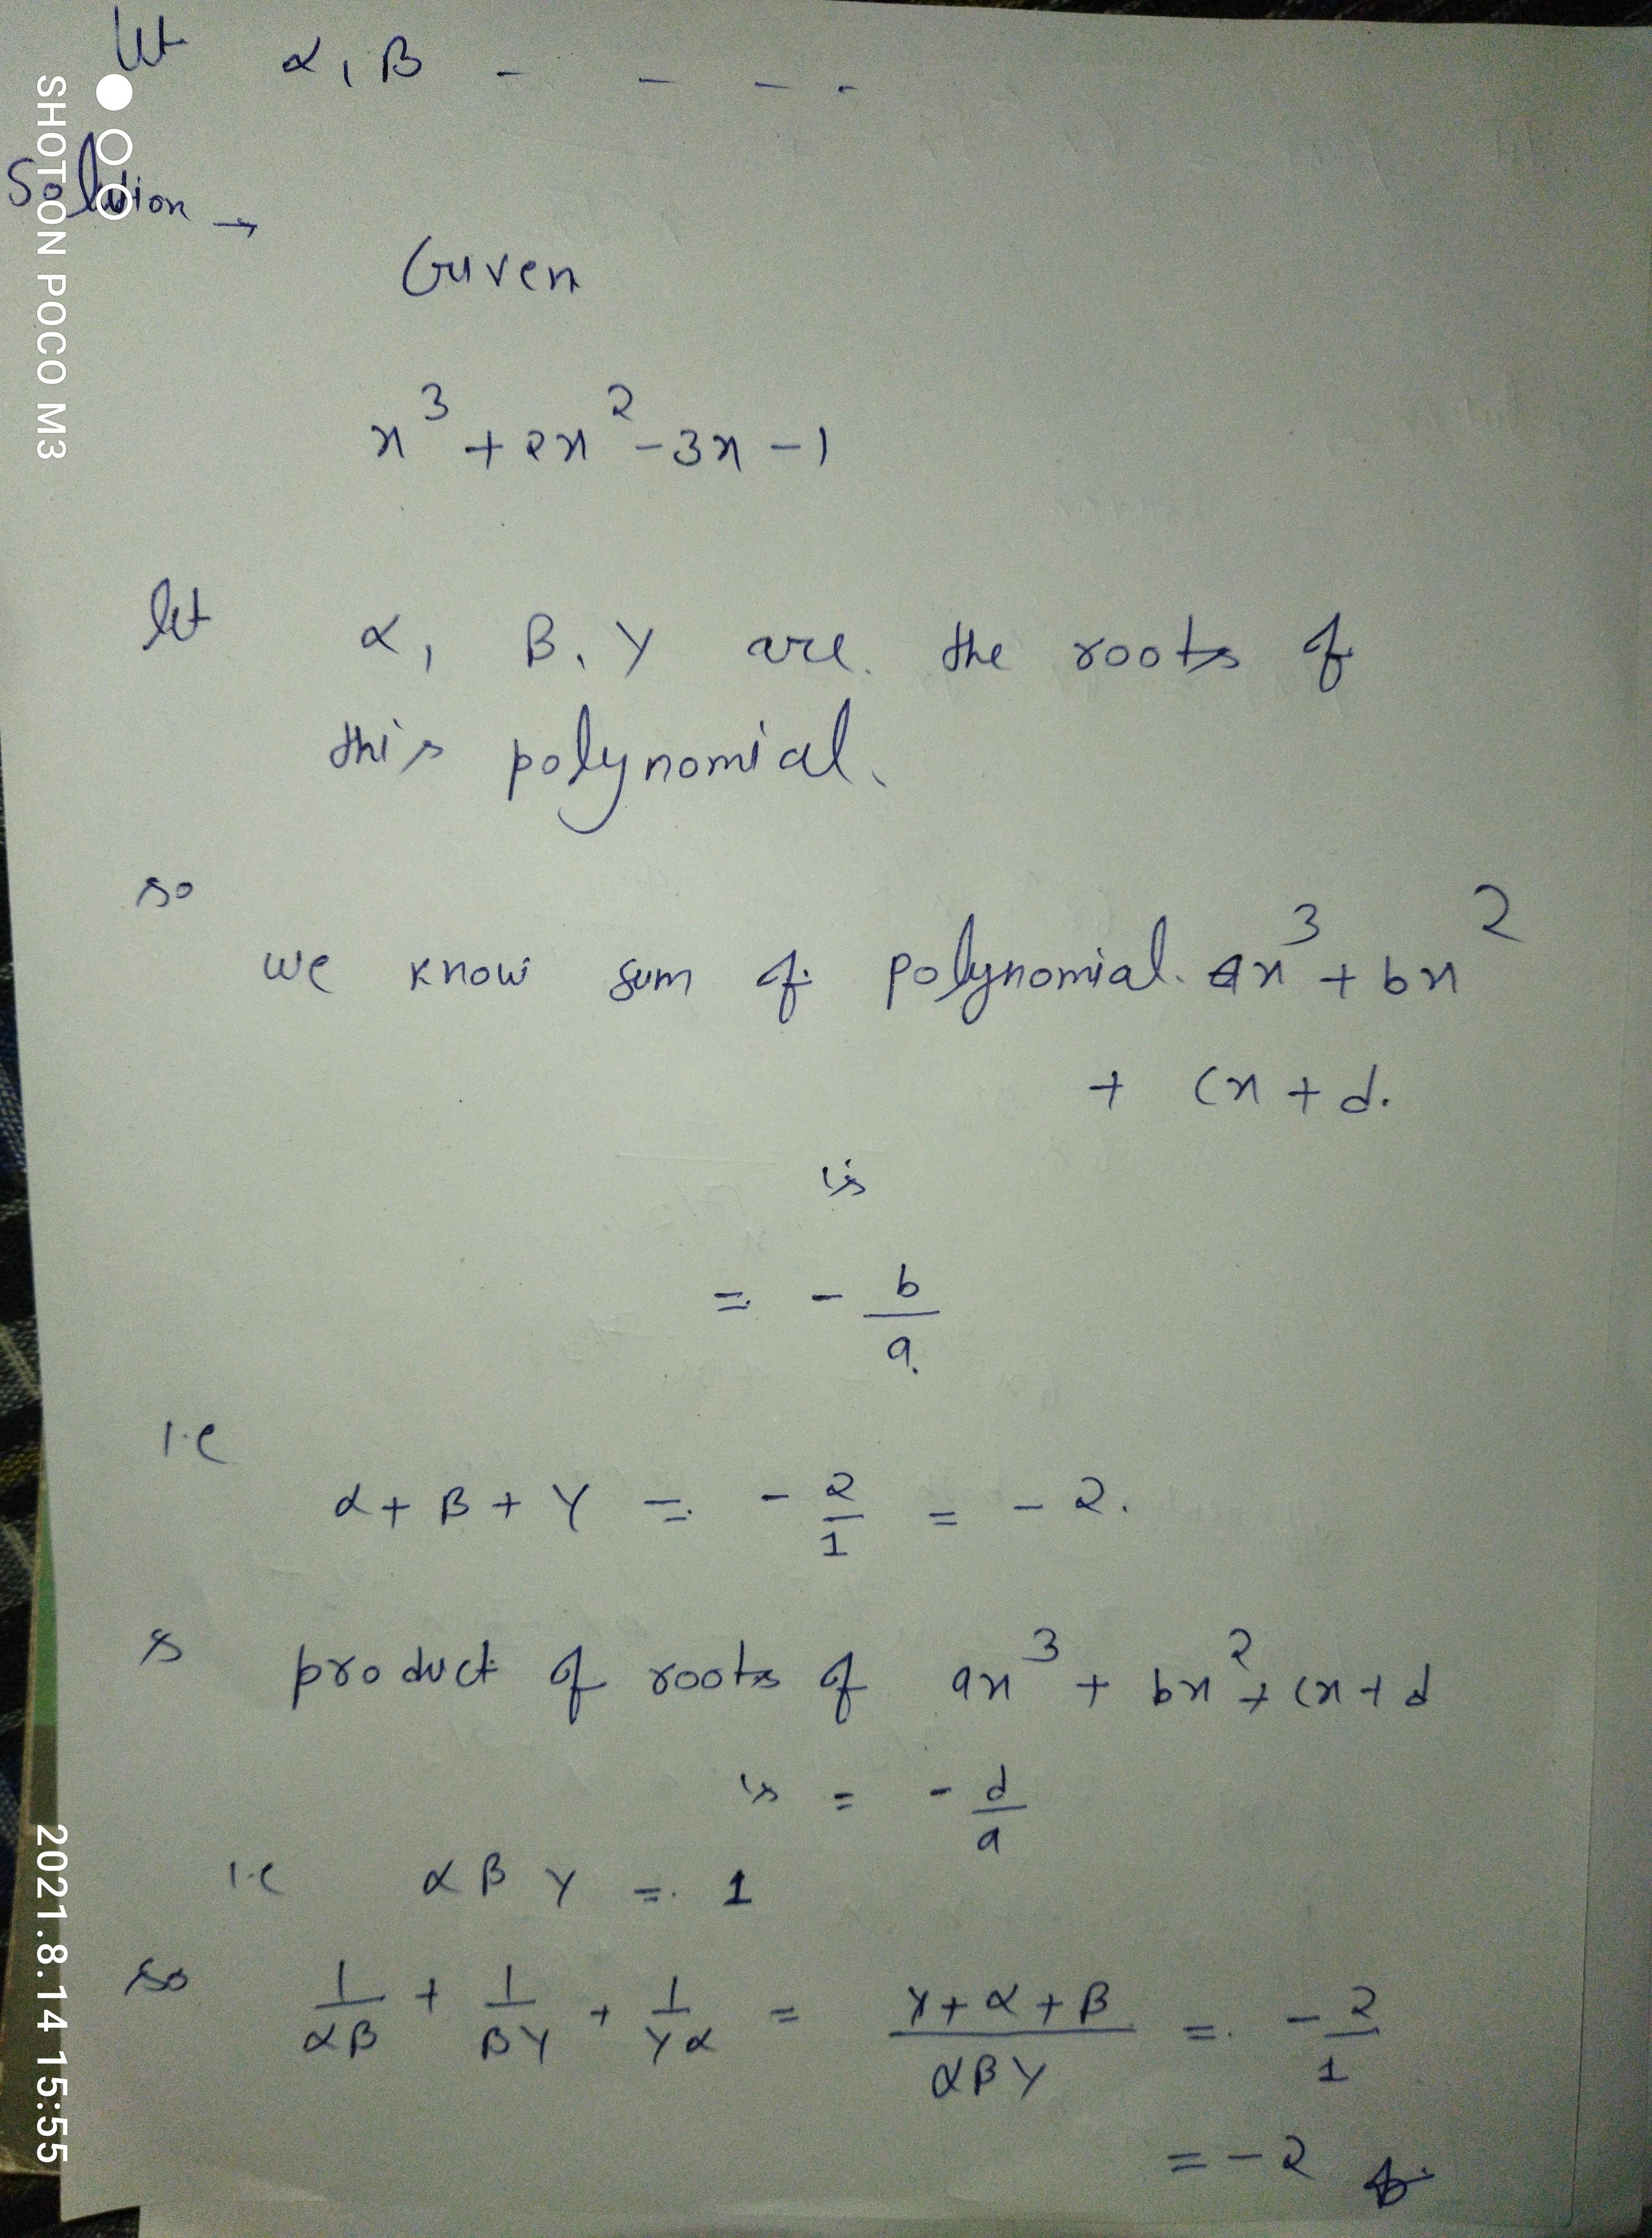 let α, B - - - -
Solution →
Given
x³ + 2x² - 3x - 1
let α, B, γ are the roots of
this polynomial.
so
we know sum of polynomial ax³ + bx²
+ cx + d.
is
= - b/a
i.e
α + B + γ = - 2/1 = - 2.
& product of roots of ax³ + bx² + cx + d
is = - d/a
i.e α B γ = 1
so 1/αB + 1/Bγ + 1/γα = γ + α + B/αBγ = - 2/1
= - 2
SHOT ON POCO M3
2021.8.14 15:55